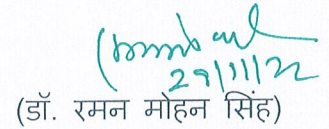 29/11/22
(डॉ. रमन मोहन सिंह)